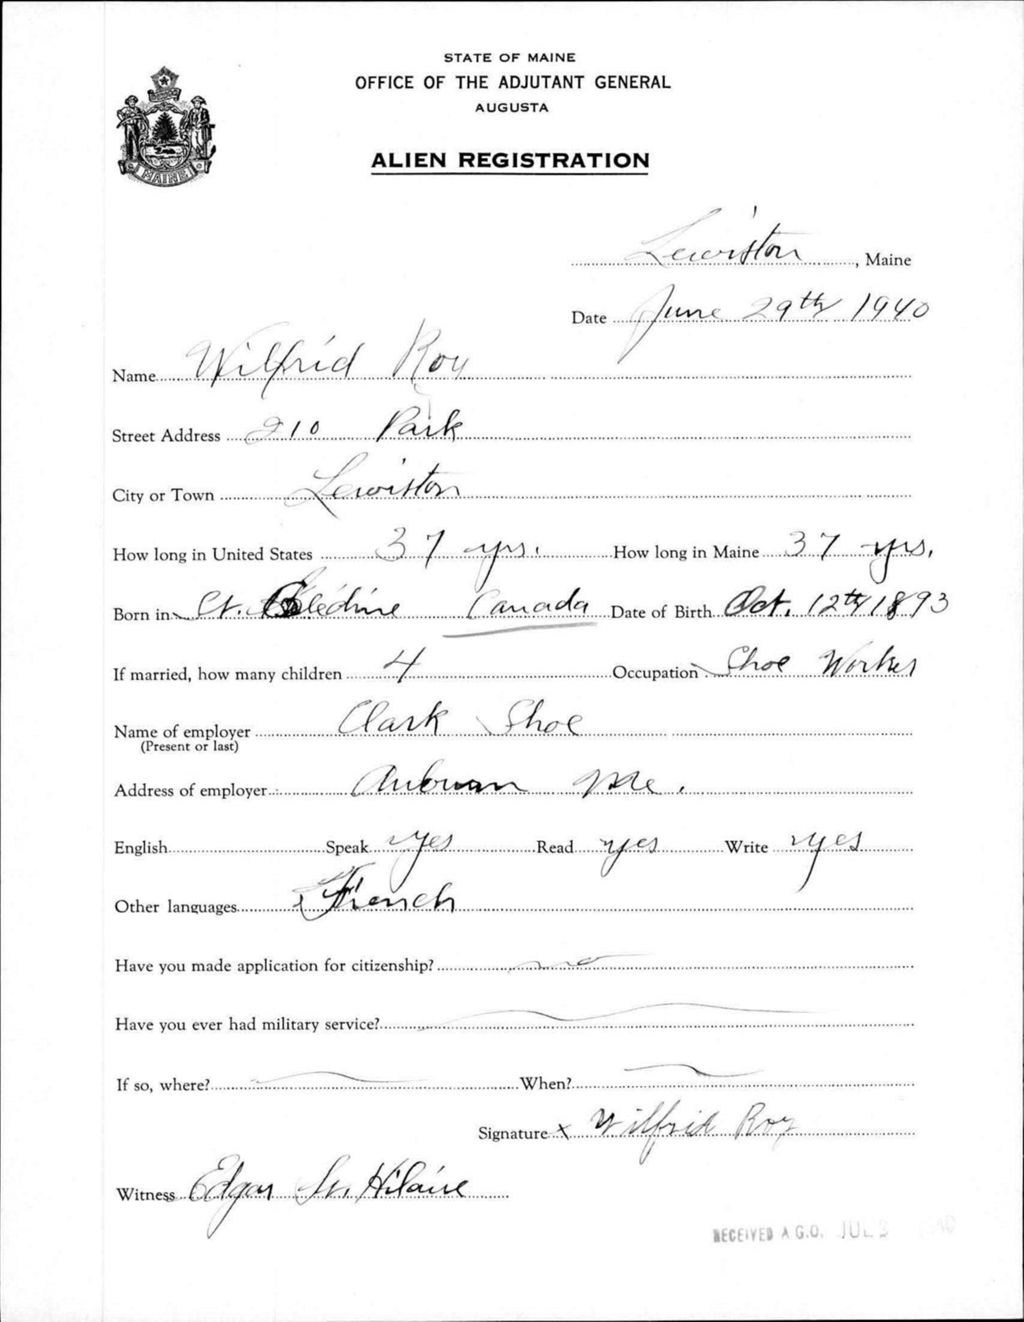 STATE OF MAINE
OFFICE OF THE ADJUTANT GENERAL
AUGUSTA
ALIEN REGISTRATION
MAINE
Lewiston, Maine
Date June 29th 1940
Name Wilfrid Roy
Street Address 210 Park
City or Town Lewiston
How long in United States 37 yrs. How long in Maine 37 yrs.
Born in St. Canada Date of Birth Oct. 12th 1893
If married, how many children 4 Occupation Shoe Worker
Name of employer Clark Shoe
(Present or last)
Address of employer Auburn Me.
English Speak yes Read yes Write yes
Other languages French
Have you made application for citizenship? no
Have you ever had military service?
If so, where? When?
Signature x Wilfrid Roy
Witness Edgar St. Hilaire
RECEIVED A.G.O. JUL 3 1940